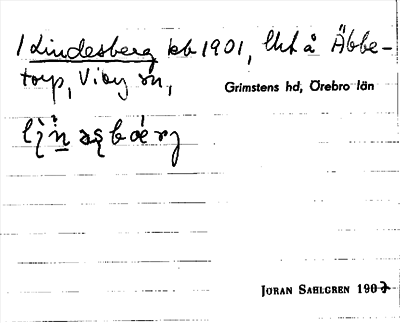 / Lindesberg kb 1901, lht å Äbbe-
torp, Viby sn,
Grimstens hd, Örebro län
JÖRAN SAHLGREN 190